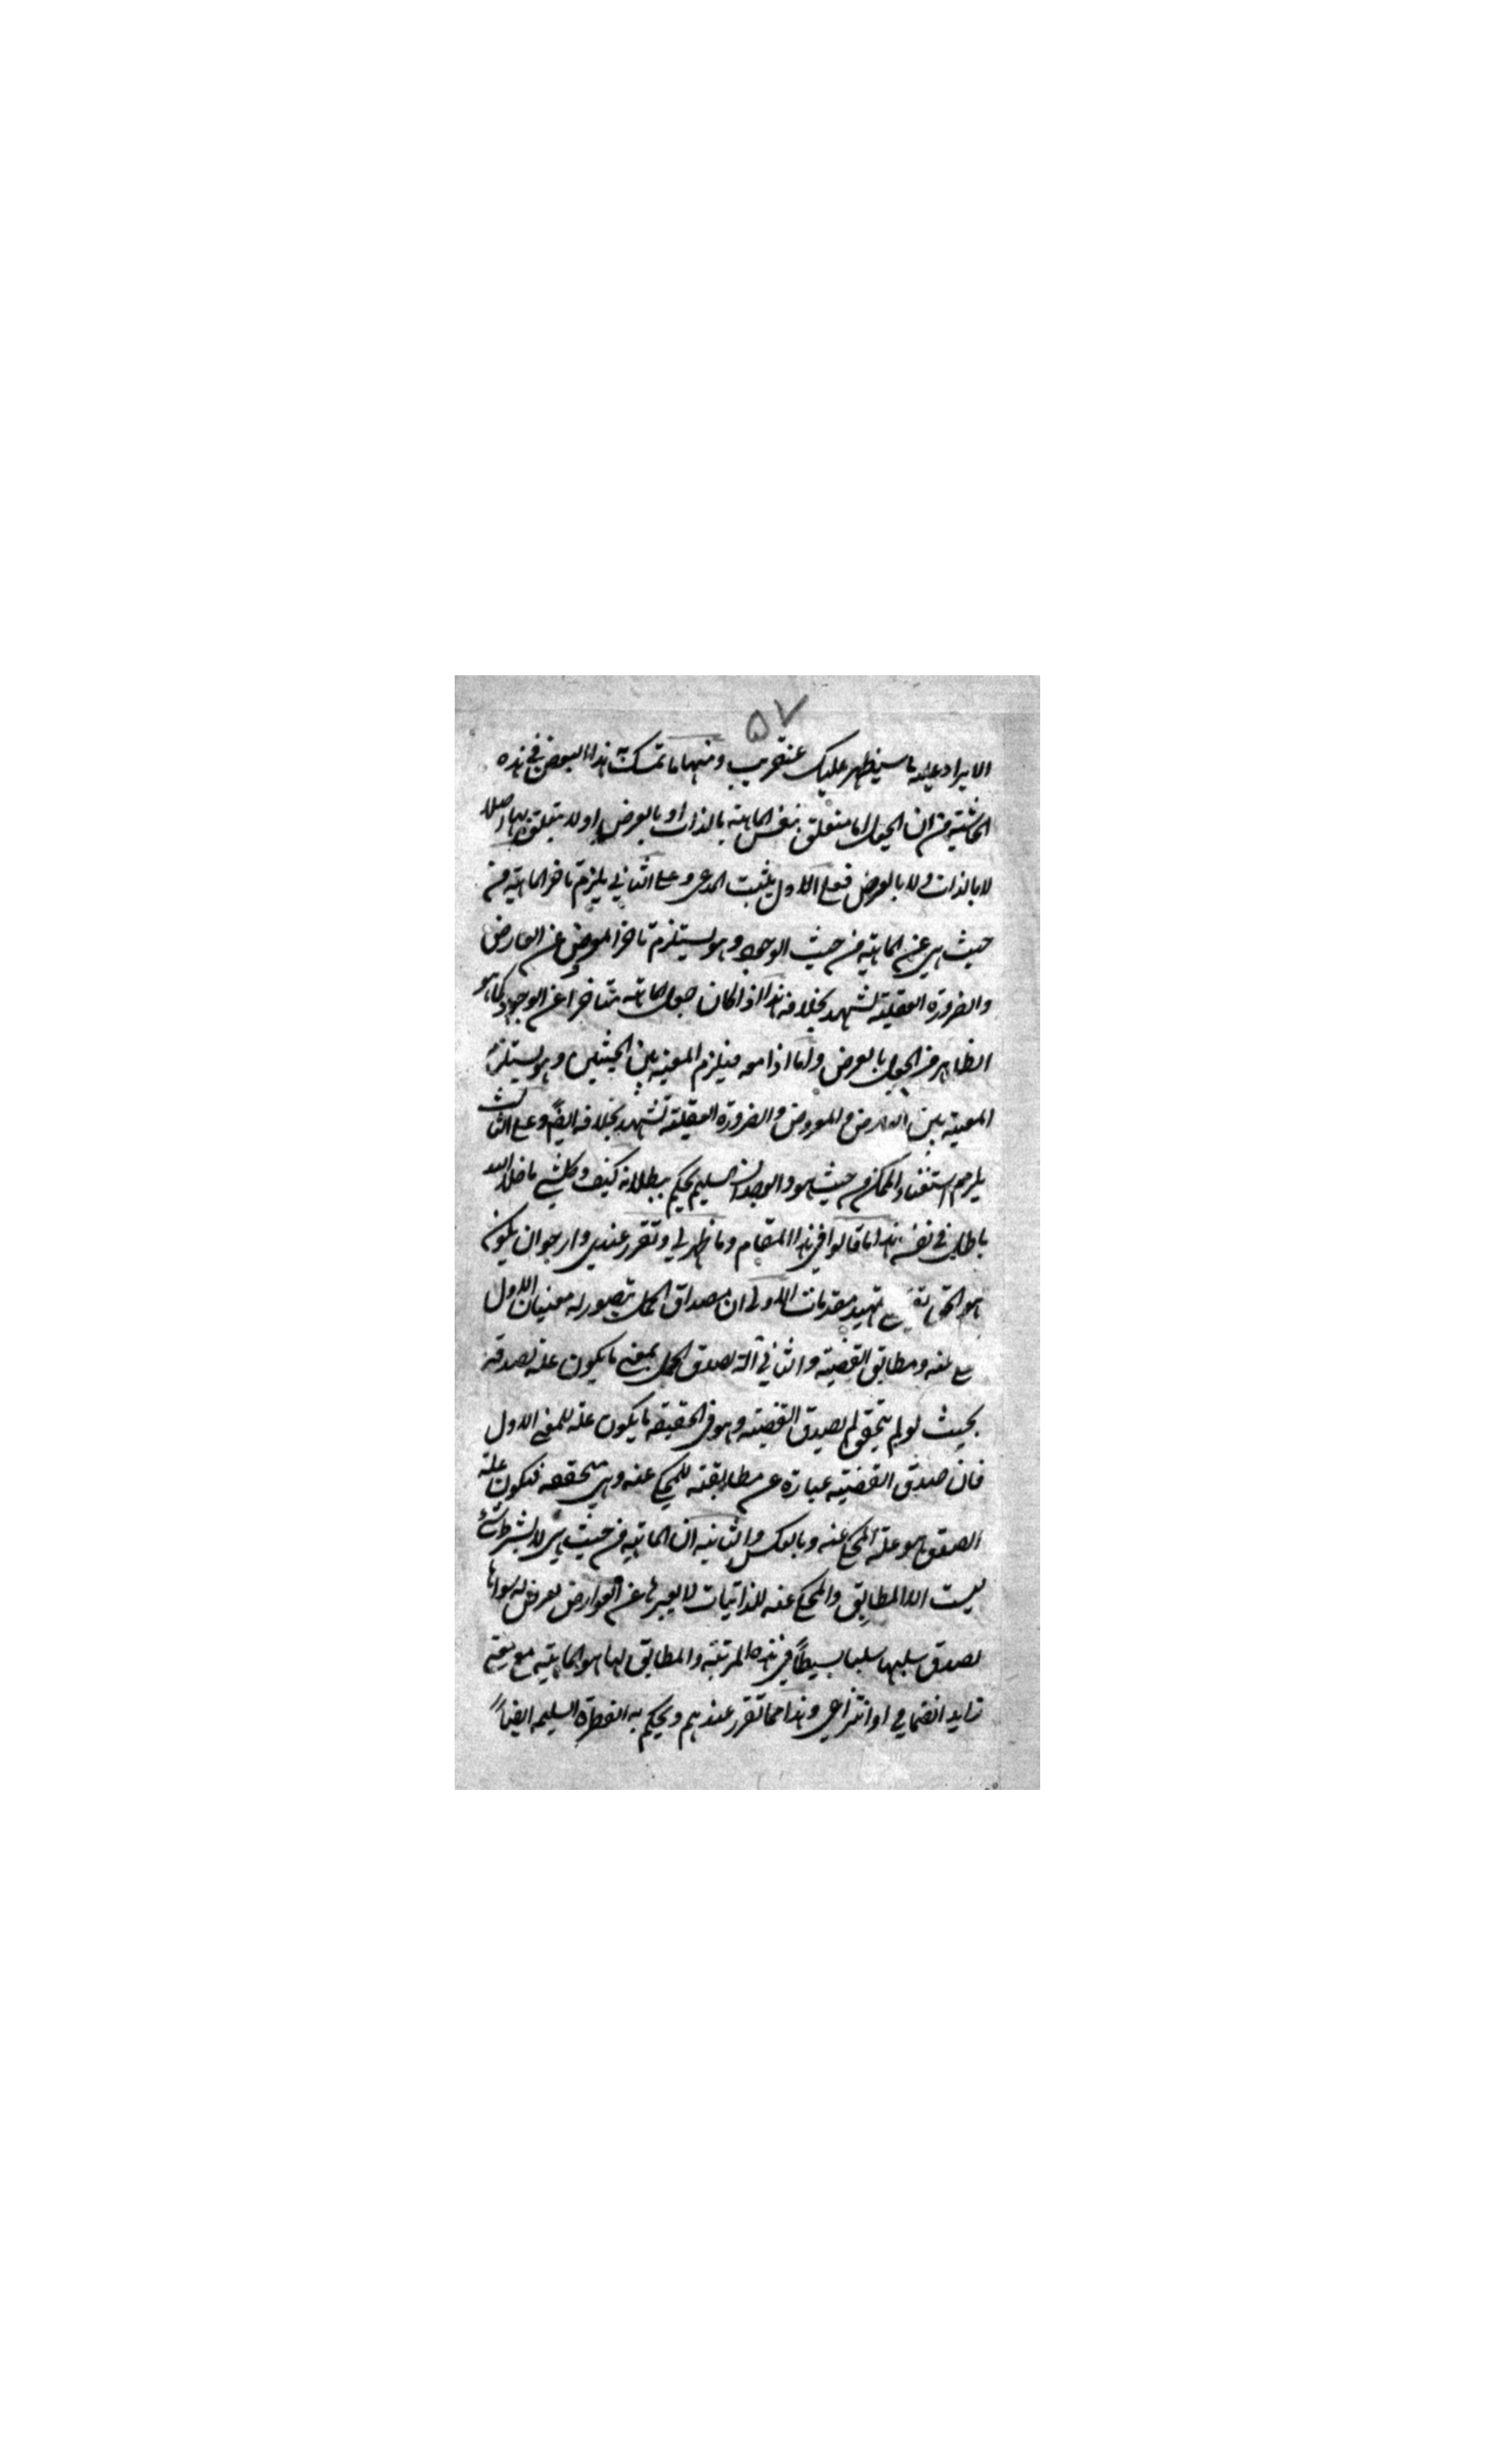 ۵۷
الايراد عليه ما سيظهر عليك عنقريب ومنها ما تمسك به هذا البعض في هذه
الحاشية من ان الجعل اما متعلق بنفس الماهية بالذات او بالعرض او لا يتعلق بها اصلا
لا بالذات ولا بالعرض فعلى الاول يثبت المدعى وعلى الثاني يلزم تاخر الماهية من
حيث هي عن الماهية من حيث الوجود وهو يستلزم تاخر المعروض عن العارض
والضرورة العقلية تشهد بخلافه هذا اذا كان جعل الماهية متاخرا عن الوجود كما هو
الظاهر من الجعل بالعرض واما اذا معه فيلزم المعية بين الحيثيتين وهو يستلزم
المعية بين العارض والمعروض والضرورة العقلية تشهد بخلافه ايضا وعلى الثالث
يلزم استغناء الممكن من حيث هو والوجدان السليم يحكم ببطلانه كيف وكل شيء ما خلا الله
باطل في نفسه هذا ما قالوا في هذا المقام وما ظهر لي وتقرر عندي وارجو ان يكون
هو الحق تمهيد مقدمات الاولى ان مصداق الحمل يتصور له معنيان الاول
عنه ومطابق القضية والثاني آلة لصدق الحمل بمعنى ما يكون علة لصدقه
بحيث لو لم يتحقق لم يصدق القضية وهو في الحقيقة ما يكون علة للمعنى الاول
فان صدق القضية عبارة عن مطابقته للمحكي عنه وهي متحققه فتكون علة
الصدق هو علة المحكي عنه وبالعكس والثانية ان الماهية من حيث هي لا بشرط شيء
ليست الا المطابق والمحكي عنه للذاتيات لا لغيرها عن العوارض لعروض سواها
لصدق سلبها سلبا بسيطا في هذه المرتبة والمطابق لها هو الماهية مع حيثية
زايد انضمامي او انتزاعي وهذا مما تقرر عندهم ويحكم به الفطرة السليمه ايضا